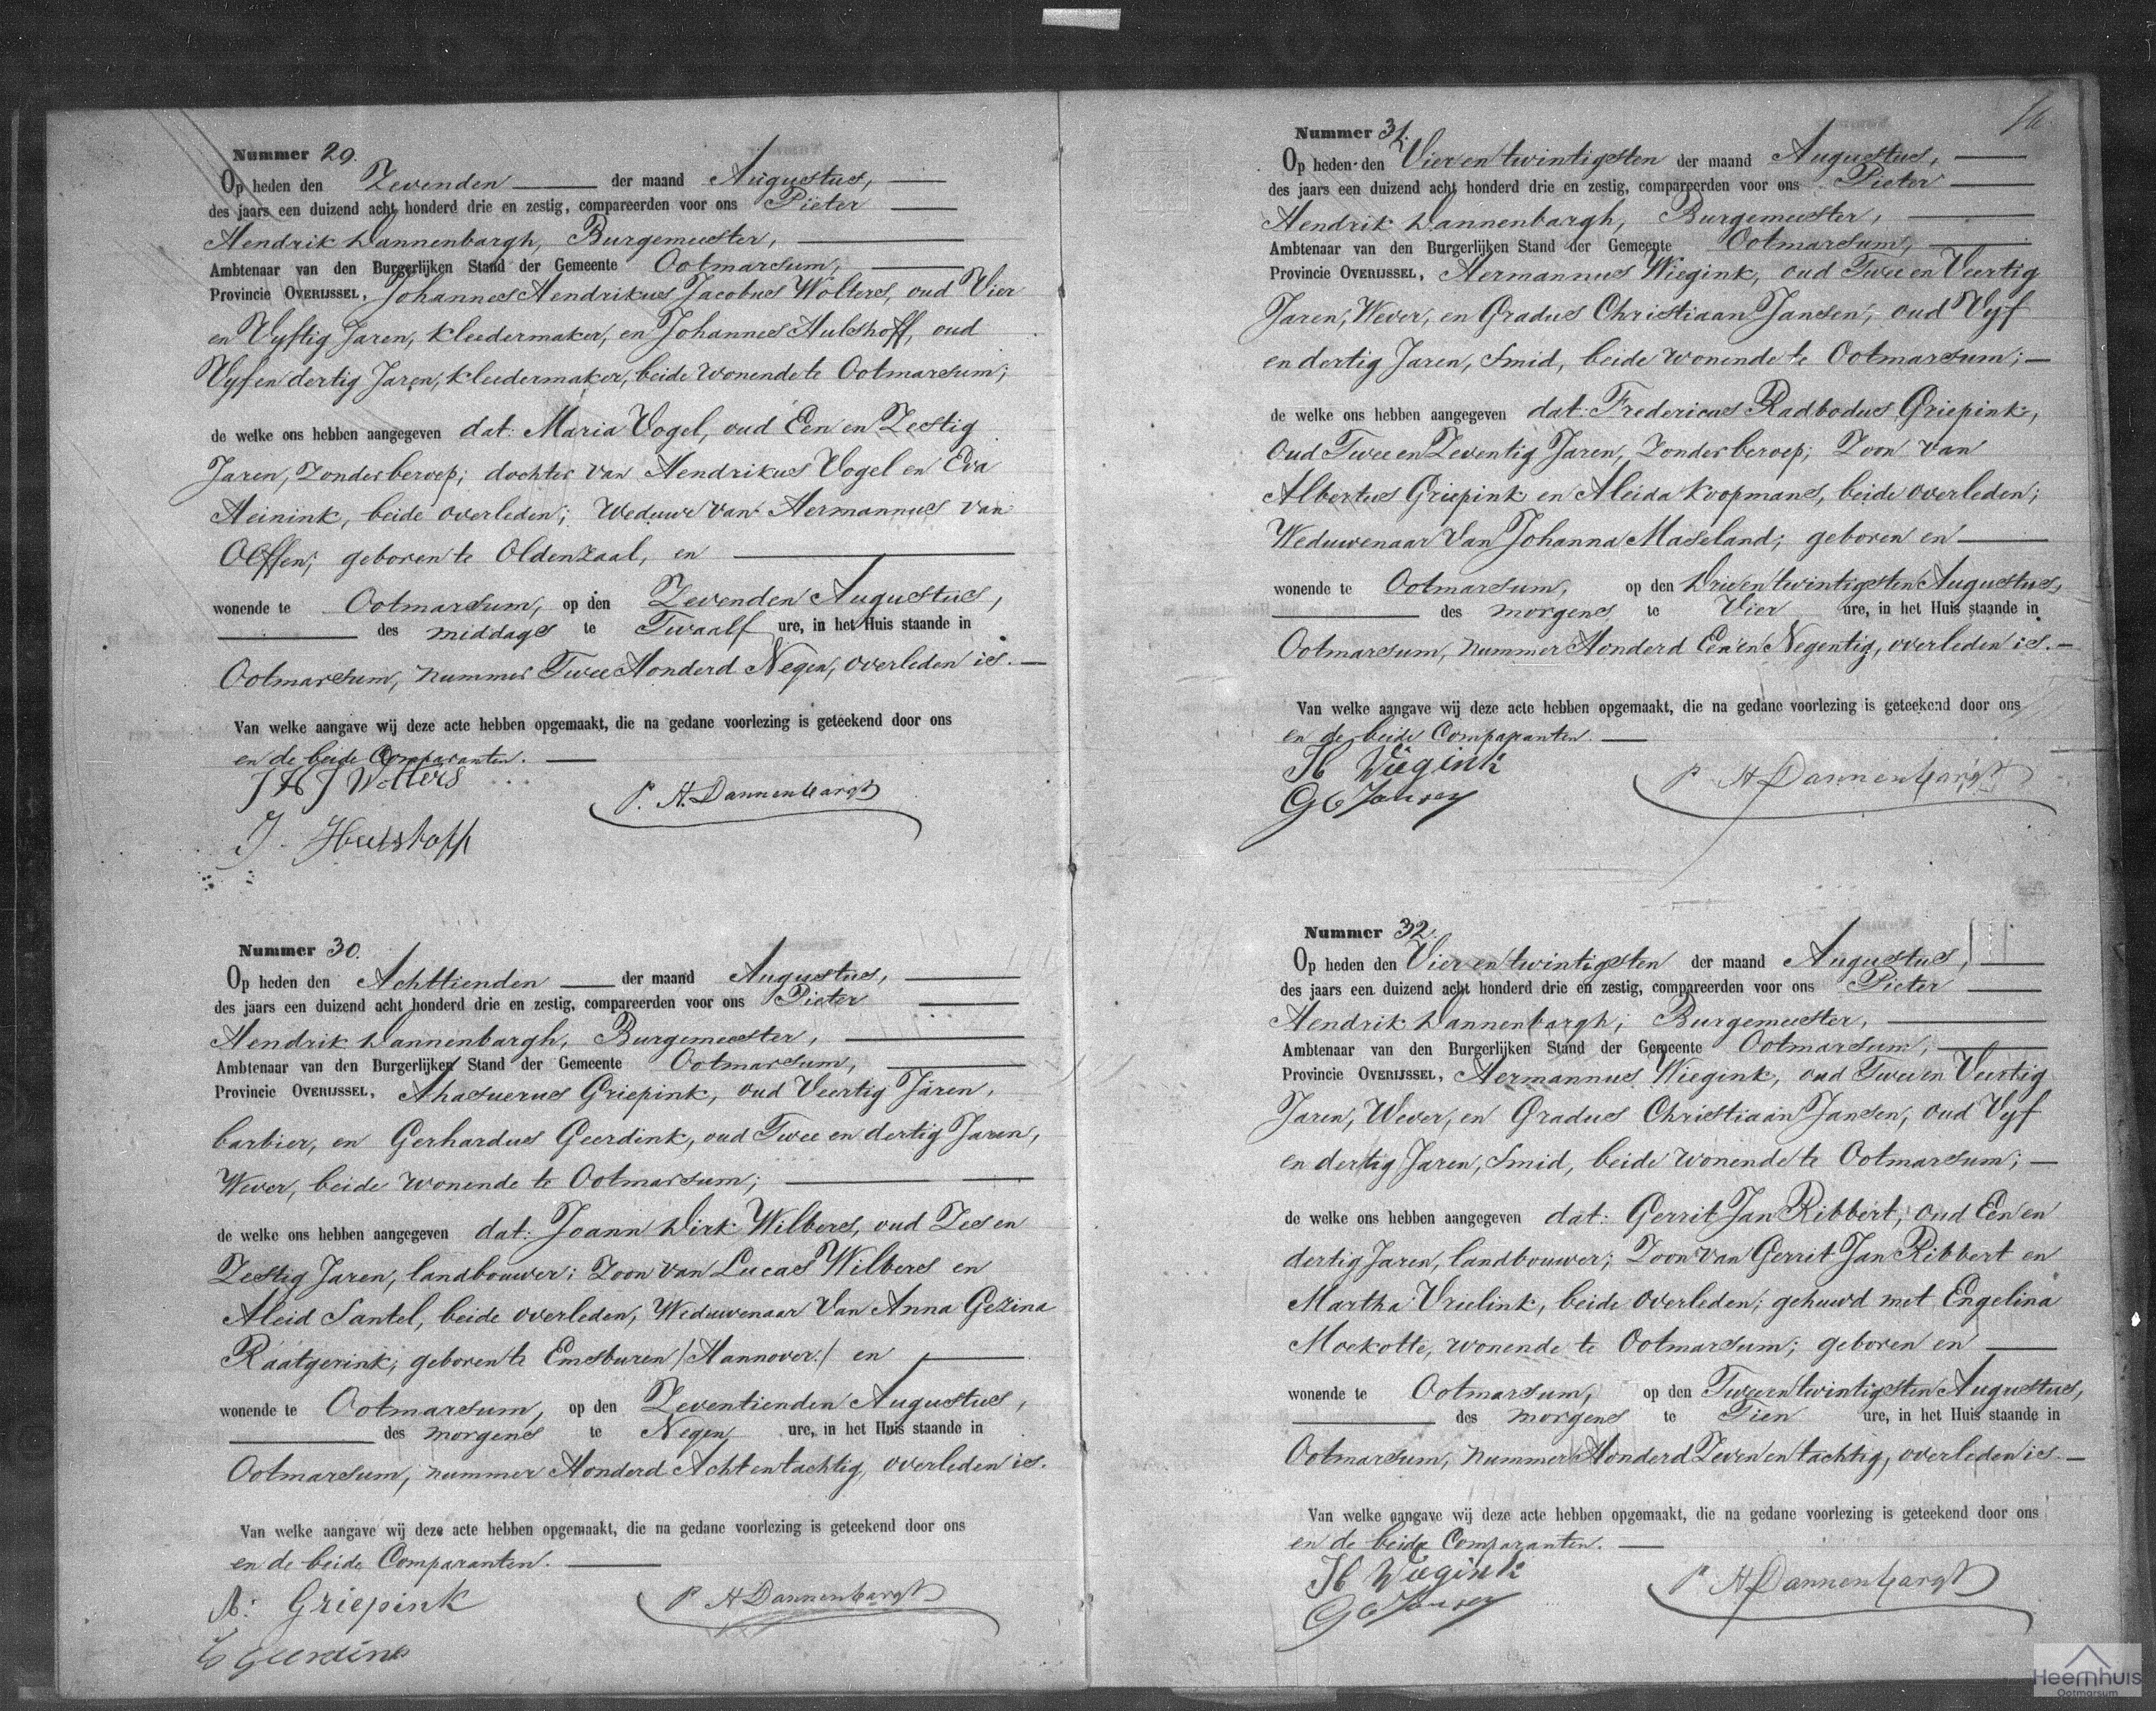 Nummer 29.
Op heden den Zevenden der maand Augustus,
des jaars een duizend acht honderd drie en zestig, compareerden voor ons Pieter
Hendrik Dannenbargh, Burgemeester,
Ambtenaar van den Burgerlijken Stand der Gemeente Ootmarsum,
Provincie OVERIJSSEL, Johannes Hendrikus Jacobus Wolters, oud Vier
en Vyftig Jaren, kleedermaker, en Johannes Hulshoff, oud
Vyf en dertig Jaren, kleedermaker, beide wonende te Ootmarsum;
de welke ons hebben aangegeven dat: Maria Vogel, oud Een en Zestig
Jaren, zonder beroep; dochter van Hendrikus Vogel en Eva
Heinink, beide overleden; Weduwe van Hermannus van
Olffen; geboren te Oldenzaal, en
wonende te Ootmarsum, op den Zevenden Augustus,
des middags te Twaalf ure, in het Huis staande in
Ootmarsum, nummer Twee Honderd Negen, overleden is.
Van welke aangave wij deze acte hebben opgemaakt, die na gedane voorlezing is geteekend door ons
en de beide Comparanten.
J H J Wolters
P. H. Dannenbargh
J. Hulshoff
Nummer 30.
Op heden den Achttienden der maand Augustus,
des jaars een duizend acht honderd drie en zestig, compareerden voor ons Pieter
Hendrik Dannenbargh, Burgemeester,
Ambtenaar van den Burgerlijken Stand der Gemeente Ootmarsum,
Provincie OVERIJSSEL, Ahasuerus Griepink, oud Veertig Jaren,
barbier, en Gerhardus Geerdink, oud Twee en dertig Jaren,
Wever, beide wonende te Ootmarsum;
de welke ons hebben aangegeven dat: Joann Dirk Wilbers, oud Zes en
Zestig Jaren, landbouwer; Zoon van Lucas Wilbers en
Aleid Santel, beide overleden, Weduwenaar van Anna Gezina
Raatgerink; geboren te Emsburen /Hannover/ en
wonende te Ootmarsum, op den Zeventienden Augustus,
des morgens te Negen ure, in het Huis staande in
Ootmarsum, nummer Honderd Acht en tachtig, overleden is.
Van welke aangave wij deze acte hebben opgemaakt, die na gedane voorlezing is geteekend door ons
en de beide Comparanten.
A: Griepink
P H Dannenbargh
G Geerdink
Nummer 31.
Op heden den Vier en twintigsten der maand Augustus,
des jaars een duizend acht honderd drie en zestig, compareerden voor ons Pieter
Hendrik Dannenbargh, Burgemeester,
Ambtenaar van den Burgerlijken Stand der Gemeente Ootmarsum,
Provincie OVERIJSSEL, Hermannus Wiegink, oud Twee en Veertig
Jaren, Wever, en Gradus Christiaan Jansen, oud Vyf
en dertig Jaren, Smid, beide wonende te Ootmarsum;
de welke ons hebben aangegeven dat: Fredericus Radbodus Griepink,
oud Twee en Zeventig Jaren, zonder beroep; Zoon van
Albertus Griepink en Aleida Koopmans, beide overleden;
Weduwenaar van Johanna Maseland; geboren en
wonende te Ootmarsum, op den Drie en twintigsten Augustus,
des morgens te Vier ure, in het Huis staande in
Ootmarsum, nummer Honderd Een en Negentig, overleden is.
Van welke aangave wij deze acte hebben opgemaakt, die na gedane voorlezing is geteekend door ons
en de beide Comparanten.
H Wiegink
P H Dannenbargh
G C Jansen
Nummer 32.
Op heden den Vier en twintigsten der maand Augustus,
des jaars een duizend acht honderd drie en zestig, compareerden voor ons Pieter
Hendrik Dannenbargh, Burgemeester,
Ambtenaar van den Burgerlijken Stand der Gemeente Ootmarsum,
Provincie OVERIJSSEL, Hermannus Wiegink, oud Twee en Veertig
Jaren, Wever, en Gradus Christiaan Jansen, oud Vyf
en dertig Jaren, Smid, beide wonende te Ootmarsum;
de welke ons hebben aangegeven dat: Gerrit Jan Ribbert, oud Een en
dertig Jaren, landbouwer; Zoon van Gerrit Jan Ribbert en
Martha Vrielink, beide overleden; gehuwd met Engelina
Mockotte, wonende te Ootmarsum; geboren en
wonende te Ootmarsum, op den Twee en twintigsten Augustus,
des morgens te Tien ure, in het Huis staande in
Ootmarsum, nummer Honderd Zeven en tachtig, overleden is.
Van welke aangave wij deze acte hebben opgemaakt, die na gedane voorlezing is geteekend door ons
en de beide Comparanten.
H Wiegink
P H Dannenbargh
G C Jansen
Heemhuis
Ootmarsum